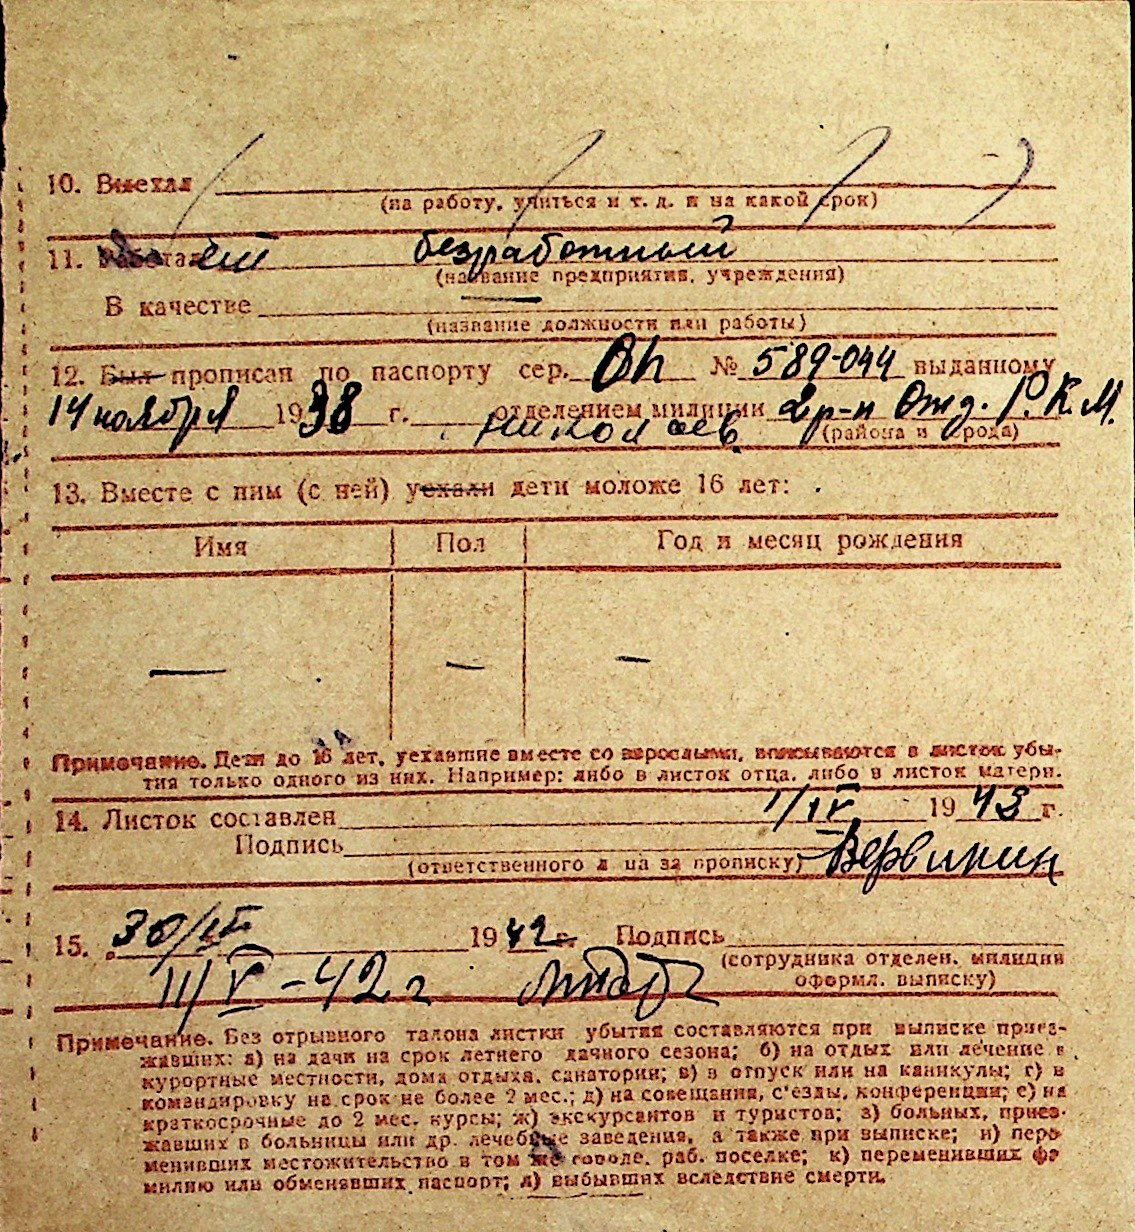 10. Выехал
(на работу, учиться и т. д. и на какой срок)
11. безработный
(название предприятия, учреждения)
В качестве —
(название должности или работы)
12. Был прописан по паспорту сер. № 589-044 выданному
14 ноября 1938 г. отделением милиции 2 р-н Отд. Р.К.М.
Николаев (района и города)
13. Вместе с ним (с ней) уехали дети моложе 16 лет:
Имя Пол Год и месяц рождения
— — —
Примечание. Дети до 16 лет, уехавшие вместе со взрослыми, вписываются в листок убы-
тия только одного из них. Например: либо в листок отца, либо в листок матери.
14. Листок составлен 1/IV 1943 г.
Подпись
(ответственного л ца за прописку)
15. 30/ 1942 г. Подпись
(сотрудника отделен. милиции
-42 г оформл. выписку)
Примечание. Без отрывного талона листки убытия составляются при выписке приез-
жавших: а) на дачи на срок летнего дачного сезона; б) на отдых или лечение в
курортные местности, дома отдыха, санатории; в) в отпуск или на каникулы; г) в
командировку на срок не более 2 мес.; д) на совещания, с'езды, конференции; е) на
краткосрочные до 2 мес. курсы; ж) экскурсантов и туристов; з) больных, приез-
жавших в больницы или др. лечебные заведения, а также при выписке; и) пере-
менивших местожительство в том же городе, раб. поселке; к) переменивших фа
милию или обменявших паспорт; л) выбывших вследствие смерти.